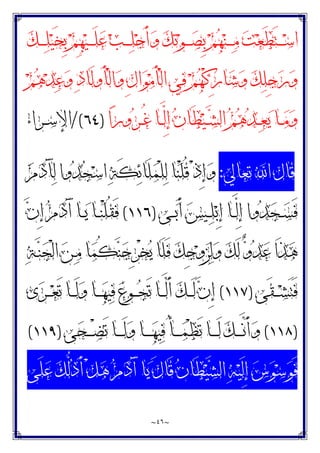 ٱسْتَطَعْتَ مِنْهُم بِصَوْتِكَ وَأَجْلِبْ عَلَيْهِم بِخَيْلِكَ
وَرَجِلِكَ وَشَارِكْهُمْ فِي ٱلْأَمْوَالِ وَٱلْأَوْلَادِ وَعِدْهُمْ
وَمَا يَعِدُهُمُ الشَّيْطَانُ إِلَّا غُرُورًا (٦٤)/الإسراء
قال الله تعالى: وَإِذْ قُلْنَا لِلْمَلَائِكَةِ اسْجُدُوا لِآدَمَ
فَسَجَدُوا إِلَّا إِبْلِيسَ أَبَىٰ (١١٦) فَقُلْنَا يَا آدَمُ إِنَّ
هَذَا عَدُوٌّ لَكَ وَلِزَوْجِكَ فَلَا يُخْرِجَنَّكُمَا مِنَ الْجَنَّةِ
فَتَشْقَى (١١٧) إِنَّ لَكَ أَلَّا تَجُوعَ فِيهَا وَلَا تَعْرَى
(١١٨) وَأَنَّكَ لَا تَظْمَأُ فِيهَا وَلَا تَضْحَى (١١٩)
فَوَسْوَسَ إِلَيْهِ الشَّيْطَانُ قَالَ يَا آدَمُ هَلْ أَدُلُّكَ عَلَى
~٤٦~